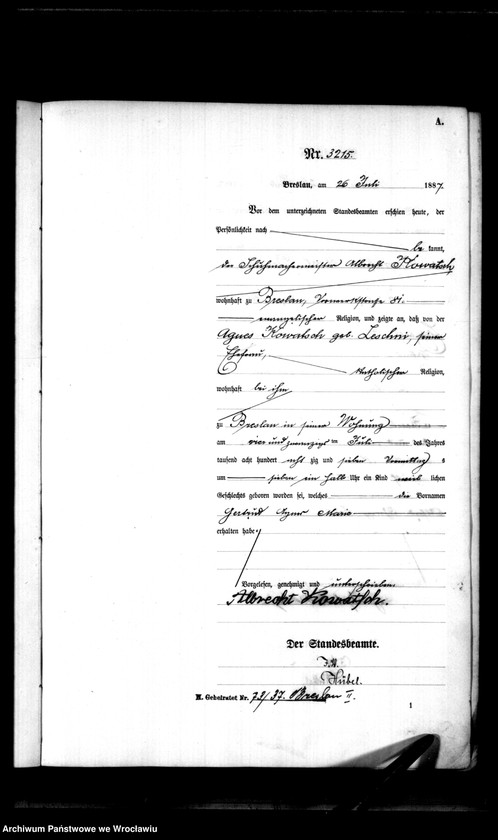 A.
Nr. 3215.
Breslau, am 26 Juli 1887.
Vor dem unterzeichneten Standesbeamten erschien heute, der
Persönlichkeit nach
be kannt,
der Schuhmachermeister Albrecht Kowatsch
wohnhaft zu Breslau, Vorwerkstraße 81.
evangelischer Religion, und zeigte an, daß von der
Agnes Kowatsch geb. Leschni, seiner
Ehefrau,
katholischer Religion,
wohnhaft bei ihm
zu Breslau in seiner Wohnung
am vier und zwanzigs ten Juli des Jahres
tausend acht hundert acht zig und sieben Vormittag s
um sieben ein halb Uhr ein Kind weib lichen
Geschlechts geboren worden sei, welches die Vornamen
Gertrud Agnes Marie
erhalten habe
Vorgelesen, genehmigt und unterschrieben
Albrecht Kowatsch.
Der Standesbeamte.
J. V.
Hübel.
H. Geheiratet Nr. 73/37. Breslau II.
1
Archiwum Państwowe we Wrocławiu